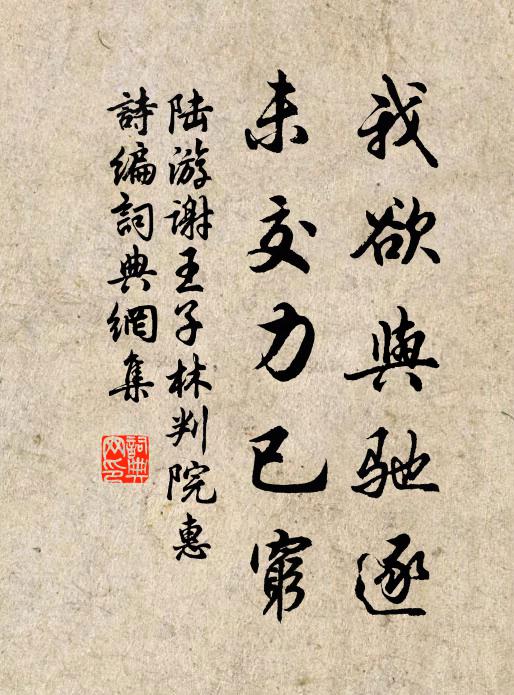 我欲與馳逐
未交力已窮
陆游谢王子林判院惠
詩編詞典網集
詞典網印